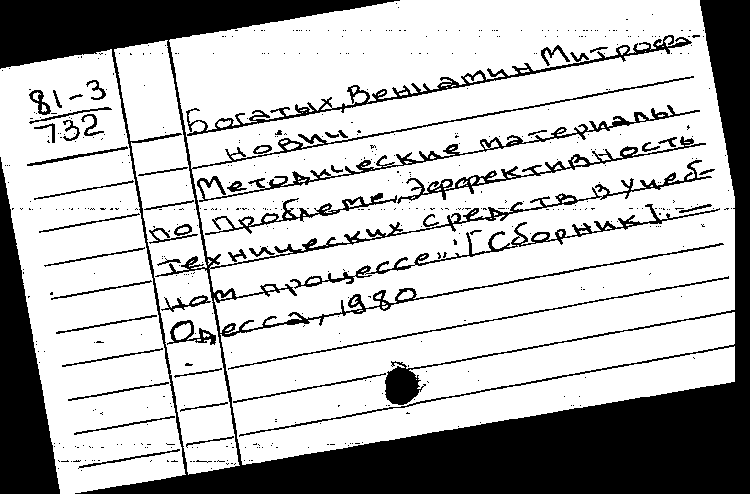 81-3
732
Богатых, Вениамин Митрофа-
нович.
Методические материалы
по проблеме „Эффективность
технических средств в учеб-
ном процессе": [Сборник]. —
Одесса, 1980